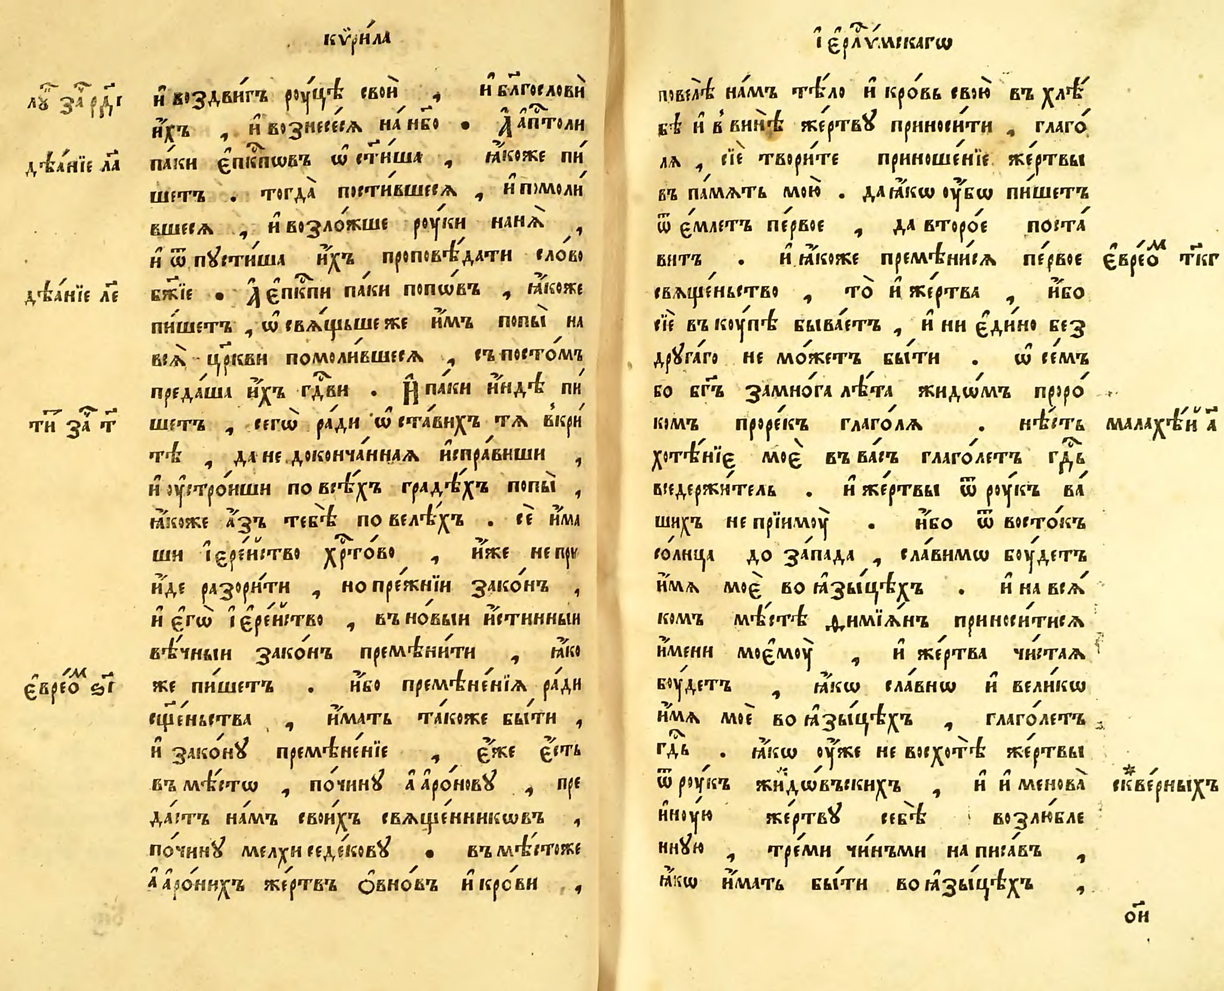 кѷри́ла
лꙋ҃ за҃ рд҃і
и҆ воздви́гъ роу́цѣ свои̑ , и҆ блг҃ослови̑
и҆́хъ , и҆ вознесесѧ на нб҃о . А҆ а҆пⷭ҇толи
дѣѧ́нїе ла
па́ки є҆пкⷭ҇пѡвъ ѡ҆ст҃и́ша , ꙗ҆́коже пи́
шетъ . тогда̀ пости́вшесѧ , и҆ помоли́
вшесѧ , и҆ возло́жше роу́ки нанѧ̀ ,
и҆ ѿпꙋсти́ша и҆́хъ проповѣ́дати сло́во
дѣѧ́нїе ле
бж҃їе . А҆ є҆пкⷭ҇пи паки попѡ́въ , ꙗ҆́коже
пи́шетъ , ѡ҆свѧ́щьше же и҆́мъ попы̀ на
всѧ̀ цр҃кви помоли́вшесѧ , съ посто́мъ
преда́ша и҆́хъ гдⷭ҇ви . И҆ паки и҆́ндѣ пи́
ти҃ за҃ т҃
шетъ , сегѡ̀ ра́ди ѡ҆ста́вихъ тѧ в̾кри́
тѣ , да не докончанна́ѧ и҆спра́виши ,
и҆ оу҆стро́иши по всѣ́хъ градѣ́хъ попы̀ ,
ꙗ҆́коже а҆́зъ тебѣ̀ повелѣ́хъ . сѐ и҆́ма
ши і҆ере́йство хрⷭ҇то́во , и҆́же не прі
и҆́де разори́ти , но пре́жнїи зако́нъ ,
и҆ є҆гѡ̀ і҆ере́йство , въ но́выи и҆́стинныи
вѣ́чныи зако́нъ премѣни́ти , ꙗ҆́ко
є҆вре́ѡⷨ ѕ҃і
же пи́шетъ . и҆́бо премѣне́нїѧ ра́ди
сщ҃е́ньства , и҆́мать та́коже бы́ти ,
и҆ зако́нꙋ премѣне́нїе , є҆́же є҆́сть
въ мѣ́стѡ , по чи́нꙋ а҆арѡ́новꙋ , пре
да́стъ на́мъ свои́хъ свѧще́нникѡвъ ,
по чи́нꙋ мелхиседе́ковꙋ . въ мѣ́стоже
а҆аро́нихъ же́ртвъ ѻ҆вно́въ и҆ кро́ви ,
і҆ерⷭ҇лꙋ́мскагѡ
повелѣ̀ на́мъ тѣ́ло и҆ кро́вь свою̀ въ хлѣ́
бѣ и҆ в̾ винѣ̀ же́ртвꙋ приноси́ти , глаго́
лѧ , сїѐ твори́те приноше́нїе же́ртвы
въ па́мѧть мою̀ . да ꙗ҆́кѡ оу҆́бѡ пи́шетъ
ѿє́млетъ пе́рвое , да второ́е поста́
є҆вре́ѡⷨ тк҃г
витъ . и҆ ꙗ҆́коже премѣни́сѧ пе́рвое
свѧще́ньство , то̀ и҆ же́ртва , и҆́бо
сїѐ въ коу́пѣ быва́етъ , и҆ ни є҆ди́но без̾
дрꙋга́го не мо́жетъ бы́ти . ѡ҆ се́мъ
бо бг҃ъ за мно́га лѣ́та жидѡ́мъ про́ро́
малахі́и а҃
комъ проре́къ глаго́лѧ . нѣ́сть
хотѣ́нїе моѐ въ ва́съ глаго́летъ гдⷭ҇ь
вседержи́тель . и҆ же́ртвы ѿ роу́къ ва́
шихъ не прїимоу̀ . и҆́бо ѿ восто́къ
со́лнца до за́пада , сла́вимѡ боу́детъ
и҆́мѧ моѐ во ꙗ҆зы́цѣхъ . и҆ на всѧ́
комъ мѣ́стѣ ѳимїѧ́нъ приноси́тисѧ
и҆́мени моємоу̀ , и҆ же́ртва чи́стаѧ
боу́детъ , ꙗ҆́кѡ сла́внѡ и҆ вели́кѡ
и҆́мѧ моѐ во ꙗ҆зы́цѣхъ , глаго́летъ
гдⷭ҇ь . ꙗ҆́кѡ оу҆́же не восхо́тѣ же́ртвы
скве́рныхъ
ѿ роу́къ жидѡ́въскихъ , и҆ и҆менова̀
и҆ноую же́ртвꙋ себѣ̀ возлю́бле
ннꙋю , тре́ми чи́нъми написа́въ ,
ꙗ҆́кѡ и҆́мать бы́ти во ꙗ҆зы́цѣхъ ,
ѻ҆́н